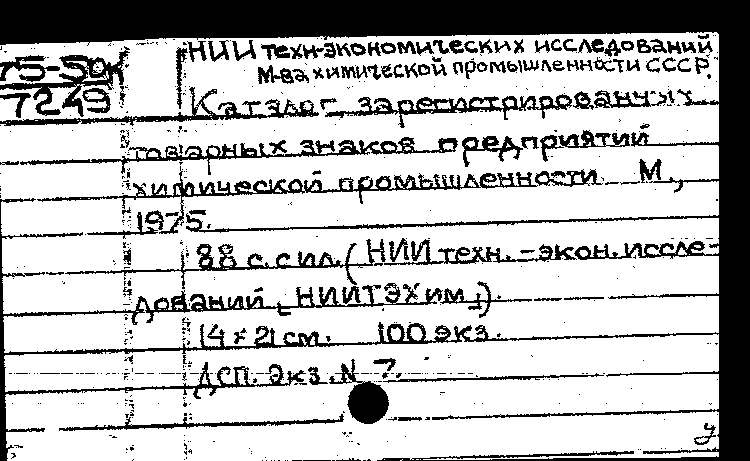 75-50к
7249
НИИ техн-экономических исследований
М-ва химической промышленности СССР.
Каталог зарегистрированных
товарных знаков предприятий
химической промышленности. М.,
1975.
88 с. с ил. (НИИ техн.-экон. иссле-
дований [НИИТЭХим]).
14 × 21 см. 100 экз.
ДСП. Экз. N 7.
у